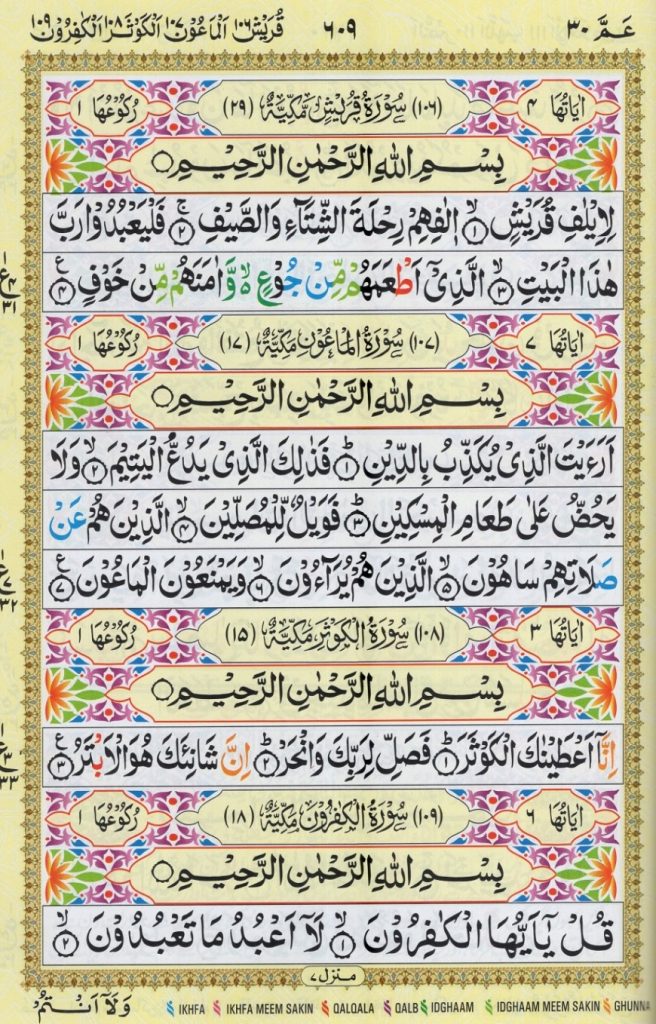 عَمَّ ٣٠ ٦٠٩ قُرَيْش ١٠٦ اَلْمَاعُوْن ١٠٧ اَلْكَوْثَر ١٠٨ اَلْكٰفِرُوْن ١٠٩
اٰيَاتُهَا ٤ (١٠٦) سُوْرَةُ قُرَيْشٍ مَّكِّيَّةٌ (٢٩) رُكُوْعُهَا ١
بِسْمِ اللهِ الرَّحْمٰنِ الرَّحِيْمِ
لِاِيْلٰفِ قُرَيْشٍ ١ اٖلٰفِهِمْ رِحْلَةَ الشِّتَآءِ وَالصَّيْفِ ٢ فَلْيَعْبُدُوْا رَبَّ
هٰذَا الْبَيْتِ ٣ الَّذِيْٓ اَطْعَمَهُمْ مِّنْ جُوْعٍ ۙ وَّاٰمَنَهُمْ مِّنْ خَوْفٍ ٤
ع ٤ ١ ٣١
اٰيَاتُهَا ٧ (١٠٧) سُوْرَةُ الْمَاعُوْنِ مَكِّيَّةٌ (١٧) رُكُوْعُهَا ١
بِسْمِ اللهِ الرَّحْمٰنِ الرَّحِيْمِ
اَرَءَيْتَ الَّذِيْ يُكَذِّبُ بِالدِّيْنِ ١ فَذٰلِكَ الَّذِيْ يَدُعُّ الْيَتِيْمَ ٢ وَلَا
يَحُضُّ عَلٰى طَعَامِ الْمِسْكِيْنِ ٣ فَوَيْلٌ لِّلْمُصَلِّيْنَ ٤ الَّذِيْنَ هُمْ عَنْ
صَلَاتِهِمْ سَاهُوْنَ ٥ الَّذِيْنَ هُمْ يُرَآءُوْنَ ٦ وَيَمْنَعُوْنَ الْمَاعُوْنَ ٧
ع ٧ ١ ٣٢
اٰيَاتُهَا ٣ (١٠٨) سُوْرَةُ الْكَوْثَرِ مَكِّيَّةٌ (١٥) رُكُوْعُهَا ١
بِسْمِ اللهِ الرَّحْمٰنِ الرَّحِيْمِ
اِنَّآ اَعْطَيْنٰكَ الْكَوْثَرَ ١ فَصَلِّ لِرَبِّكَ وَانْحَرْ ٢ اِنَّ شَانِئَكَ هُوَ الْاَبْتَرُ ٣
ع ٣ ١ ٣٣
اٰيَاتُهَا ٦ (١٠٩) سُوْرَةُ الْكٰفِرُوْنَ مَكِّيَّةٌ (١٨) رُكُوْعُهَا ١
بِسْمِ اللهِ الرَّحْمٰنِ الرَّحِيْمِ
قُلْ يٰٓاَيُّهَا الْكٰفِرُوْنَ ١ لَآ اَعْبُدُ مَا تَعْبُدُوْنَ ٢
منزل ٧
وَلَآ اَنْتُمْ IKHFA IKHFA MEEM SAKIN QALQALA QALB IDGHAAM IDGHAAM MEEM SAKIN GHUNNA